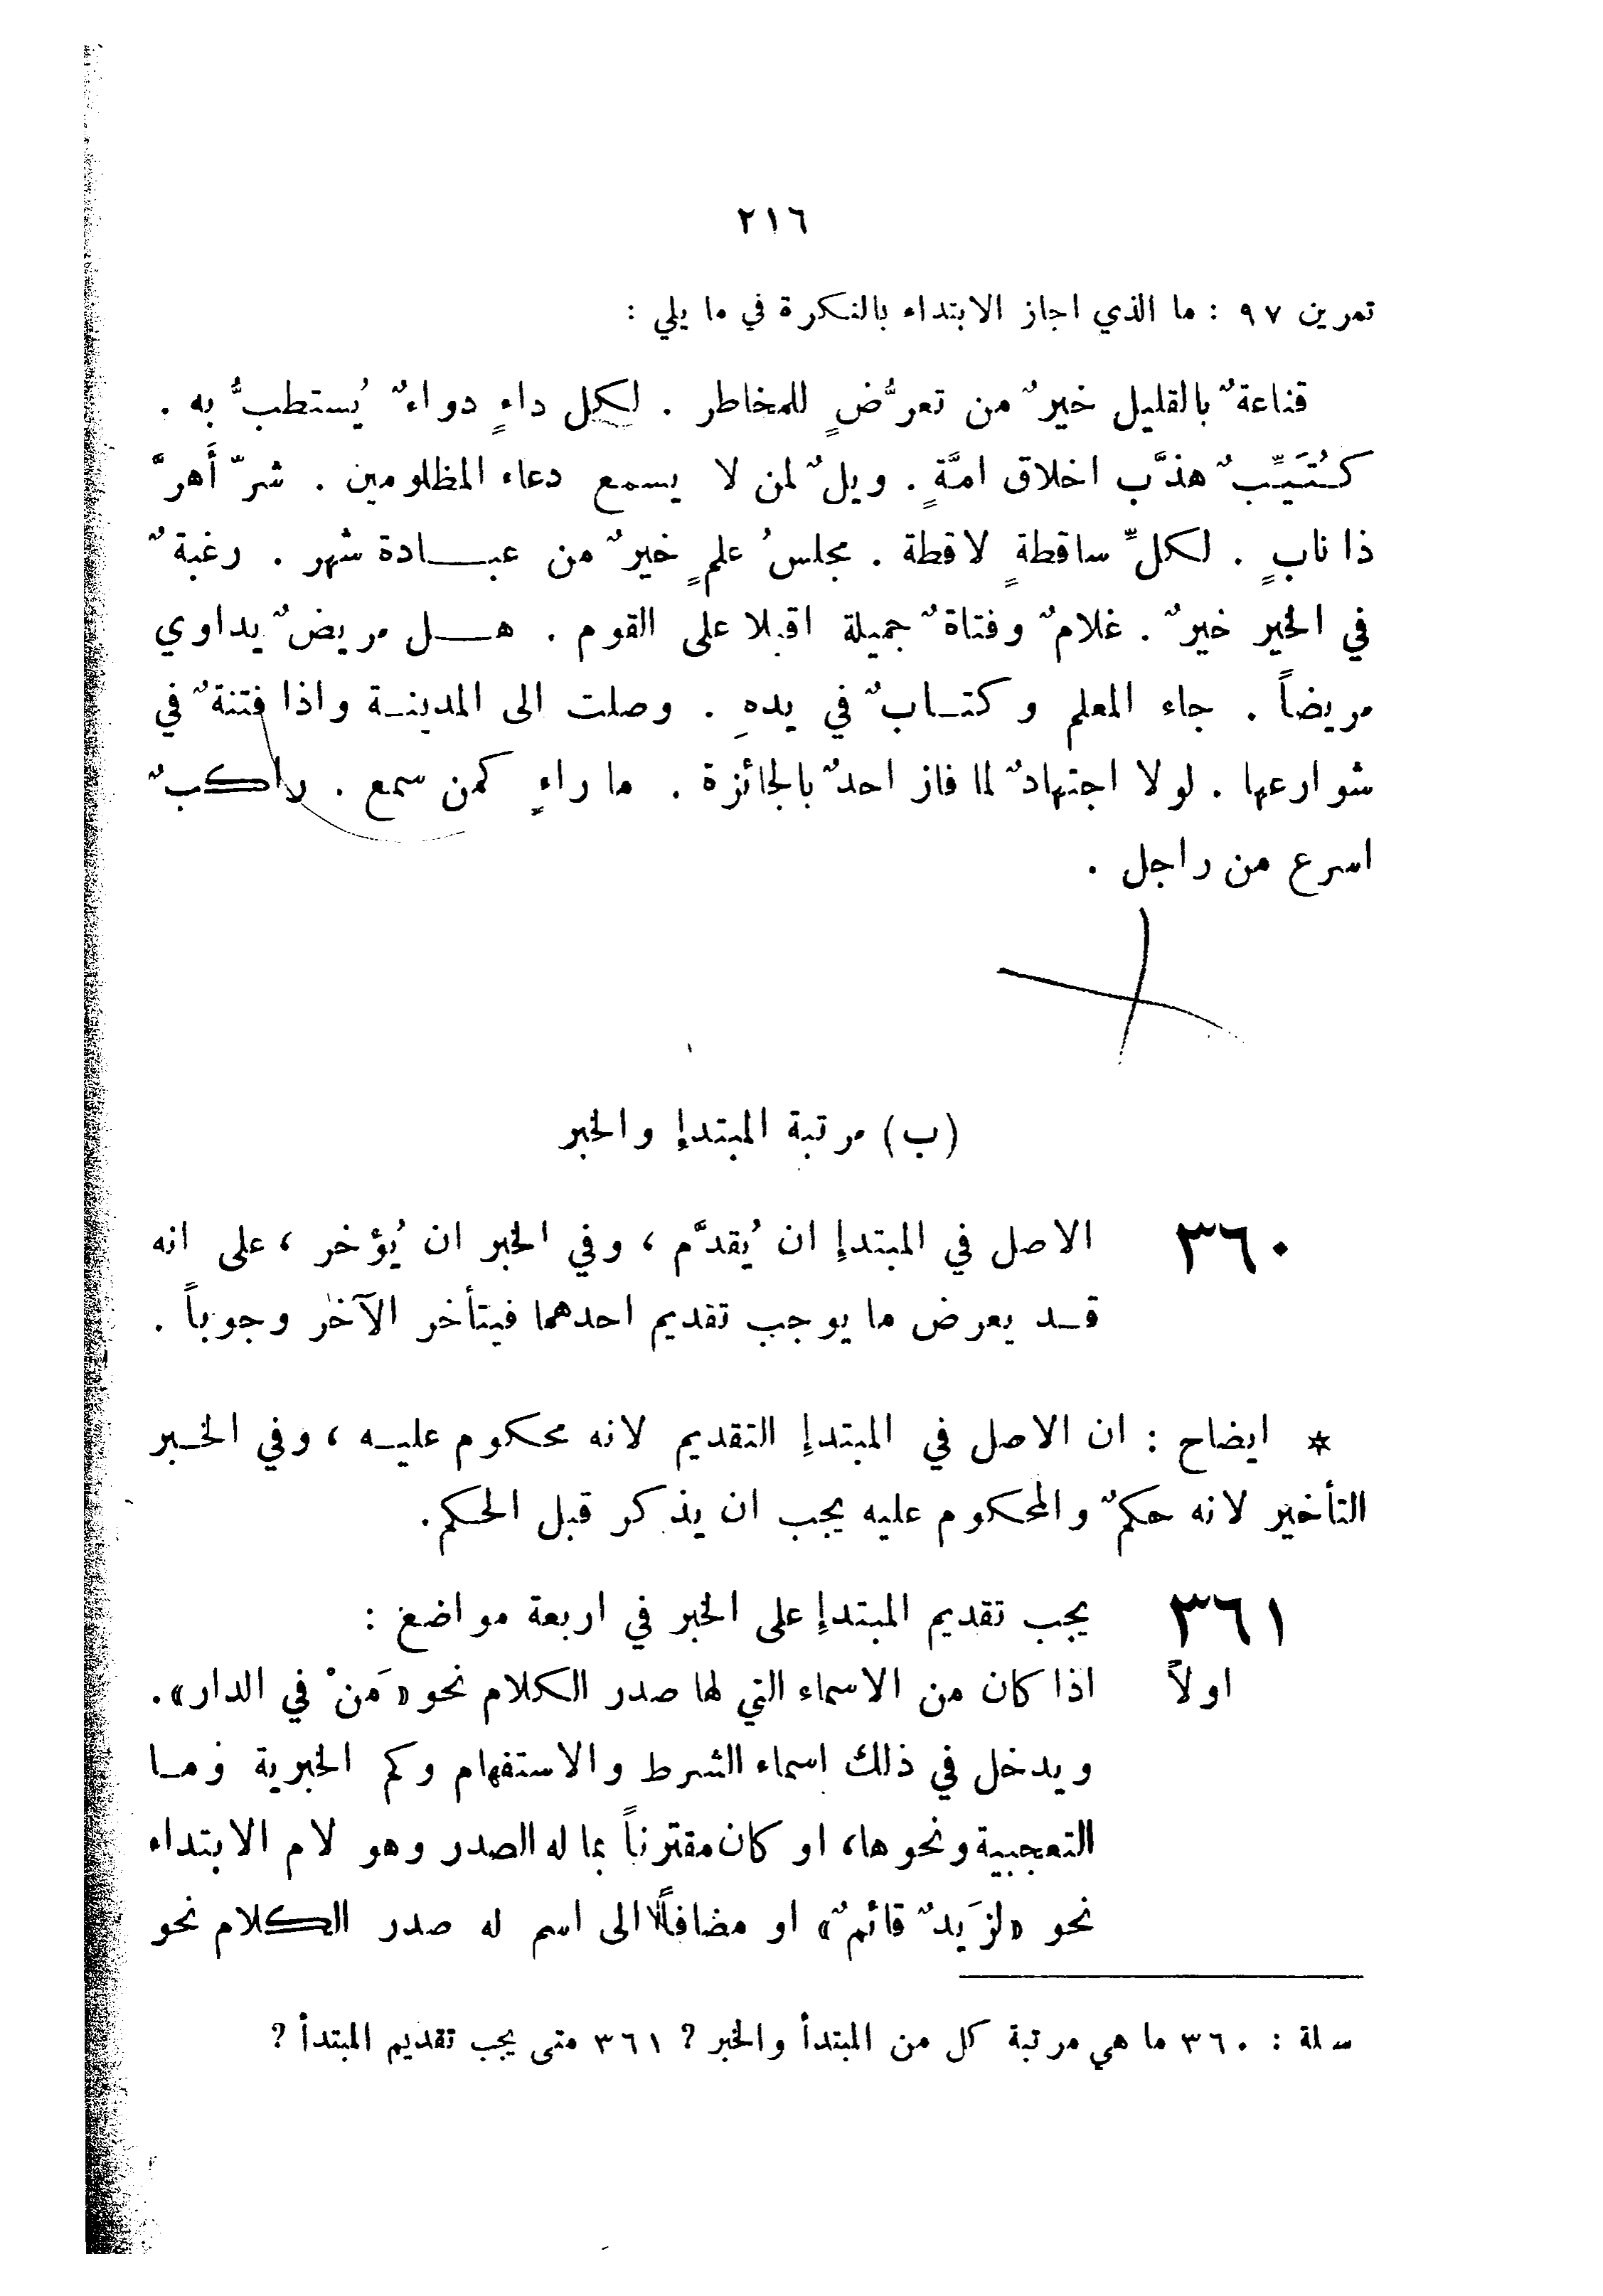 ٢١٦
تمرين ٩٧ : ما الذي اجاز الابتداء بالنكرة في ما يلي :
قناعةٌ بالقليل خيرٌ من تعرُّضٍ للمخاطر . لكل داءٍ دواءٌ يُستطبُّ به .
كُتَيِّبٌ هذَّب اخلاق امَّةٍ . ويلٌ لمن لا يسمع دعاء المظلومين . شرّ أَهرَّ
ذا نابٍ . لكلِّ ساقطةٍ لاقطة . مجلسُ علمٍ خيرٌ من عبادة شهر . رغبةٌ
في الخير خيرٌ . غلامٌ وفتاةٌ جميلة اقبلا على القوم . هل مريضٌ يداوي
مريضاً . جاء المعلم وكتابٌ في يدهِ . وصلت الى المدينة واذا فتنةٌ في
شوارعها . لولا اجتهادٌ لما فاز احدٌ بالجائزة . ما راءٍ كمن سمع . راكبٌ
اسرع من راجل .
(ب) مرتبة المبتدإ والخبر
٣٦٠ الاصل في المبتدإ ان يُقدَّم ، وفي الخبر ان يُؤخر ، على انه
قد يعرض ما يوجب تقديم احدهما فيتأخر الآخر وجوباً .
* ايضاح : ان الاصل في المبتدإ التقديم لانه محكوم عليه ، وفي الخبر
التأخير لانه حكمٌ والمحكوم عليه يجب ان يذكر قبل الحكم.
٣٦١ يجب تقديم المبتدإ على الخبر في اربعة مواضع :
اولاً اذا كان من الاسماء التي لها صدر الكلام نحو «مَنْ في الدار».
ويدخل في ذلك اسماء الشرط والاستفهام وكم الخبرية وما
التعجبية ونحوها، او كان مقترناً بما له الصدر وهو لام الابتداء
نحو «لزَيدٌ قائمٌ» او مضافاً الى اسم له صدر الكلام نحو
سلة : ٣٦٠ ما هي مرتبة كل من المبتدأ والخبر ؟ ٣٦١ متى يجب تقديم المبتدأ ؟